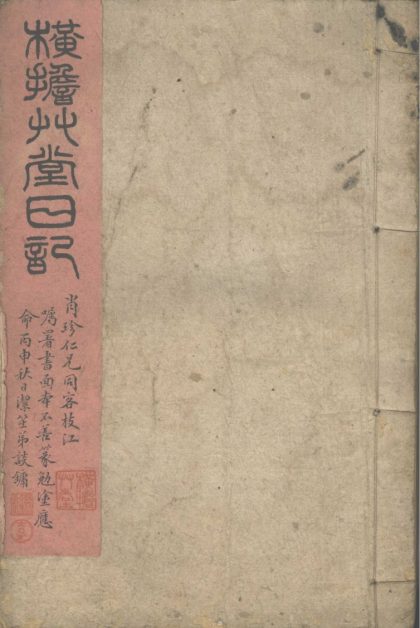 橫擔艸堂日記
肖珍仁兄同客枝江
囑署書面奉不善篆勉塗應
命丙申秋日潔笙弟談鏞